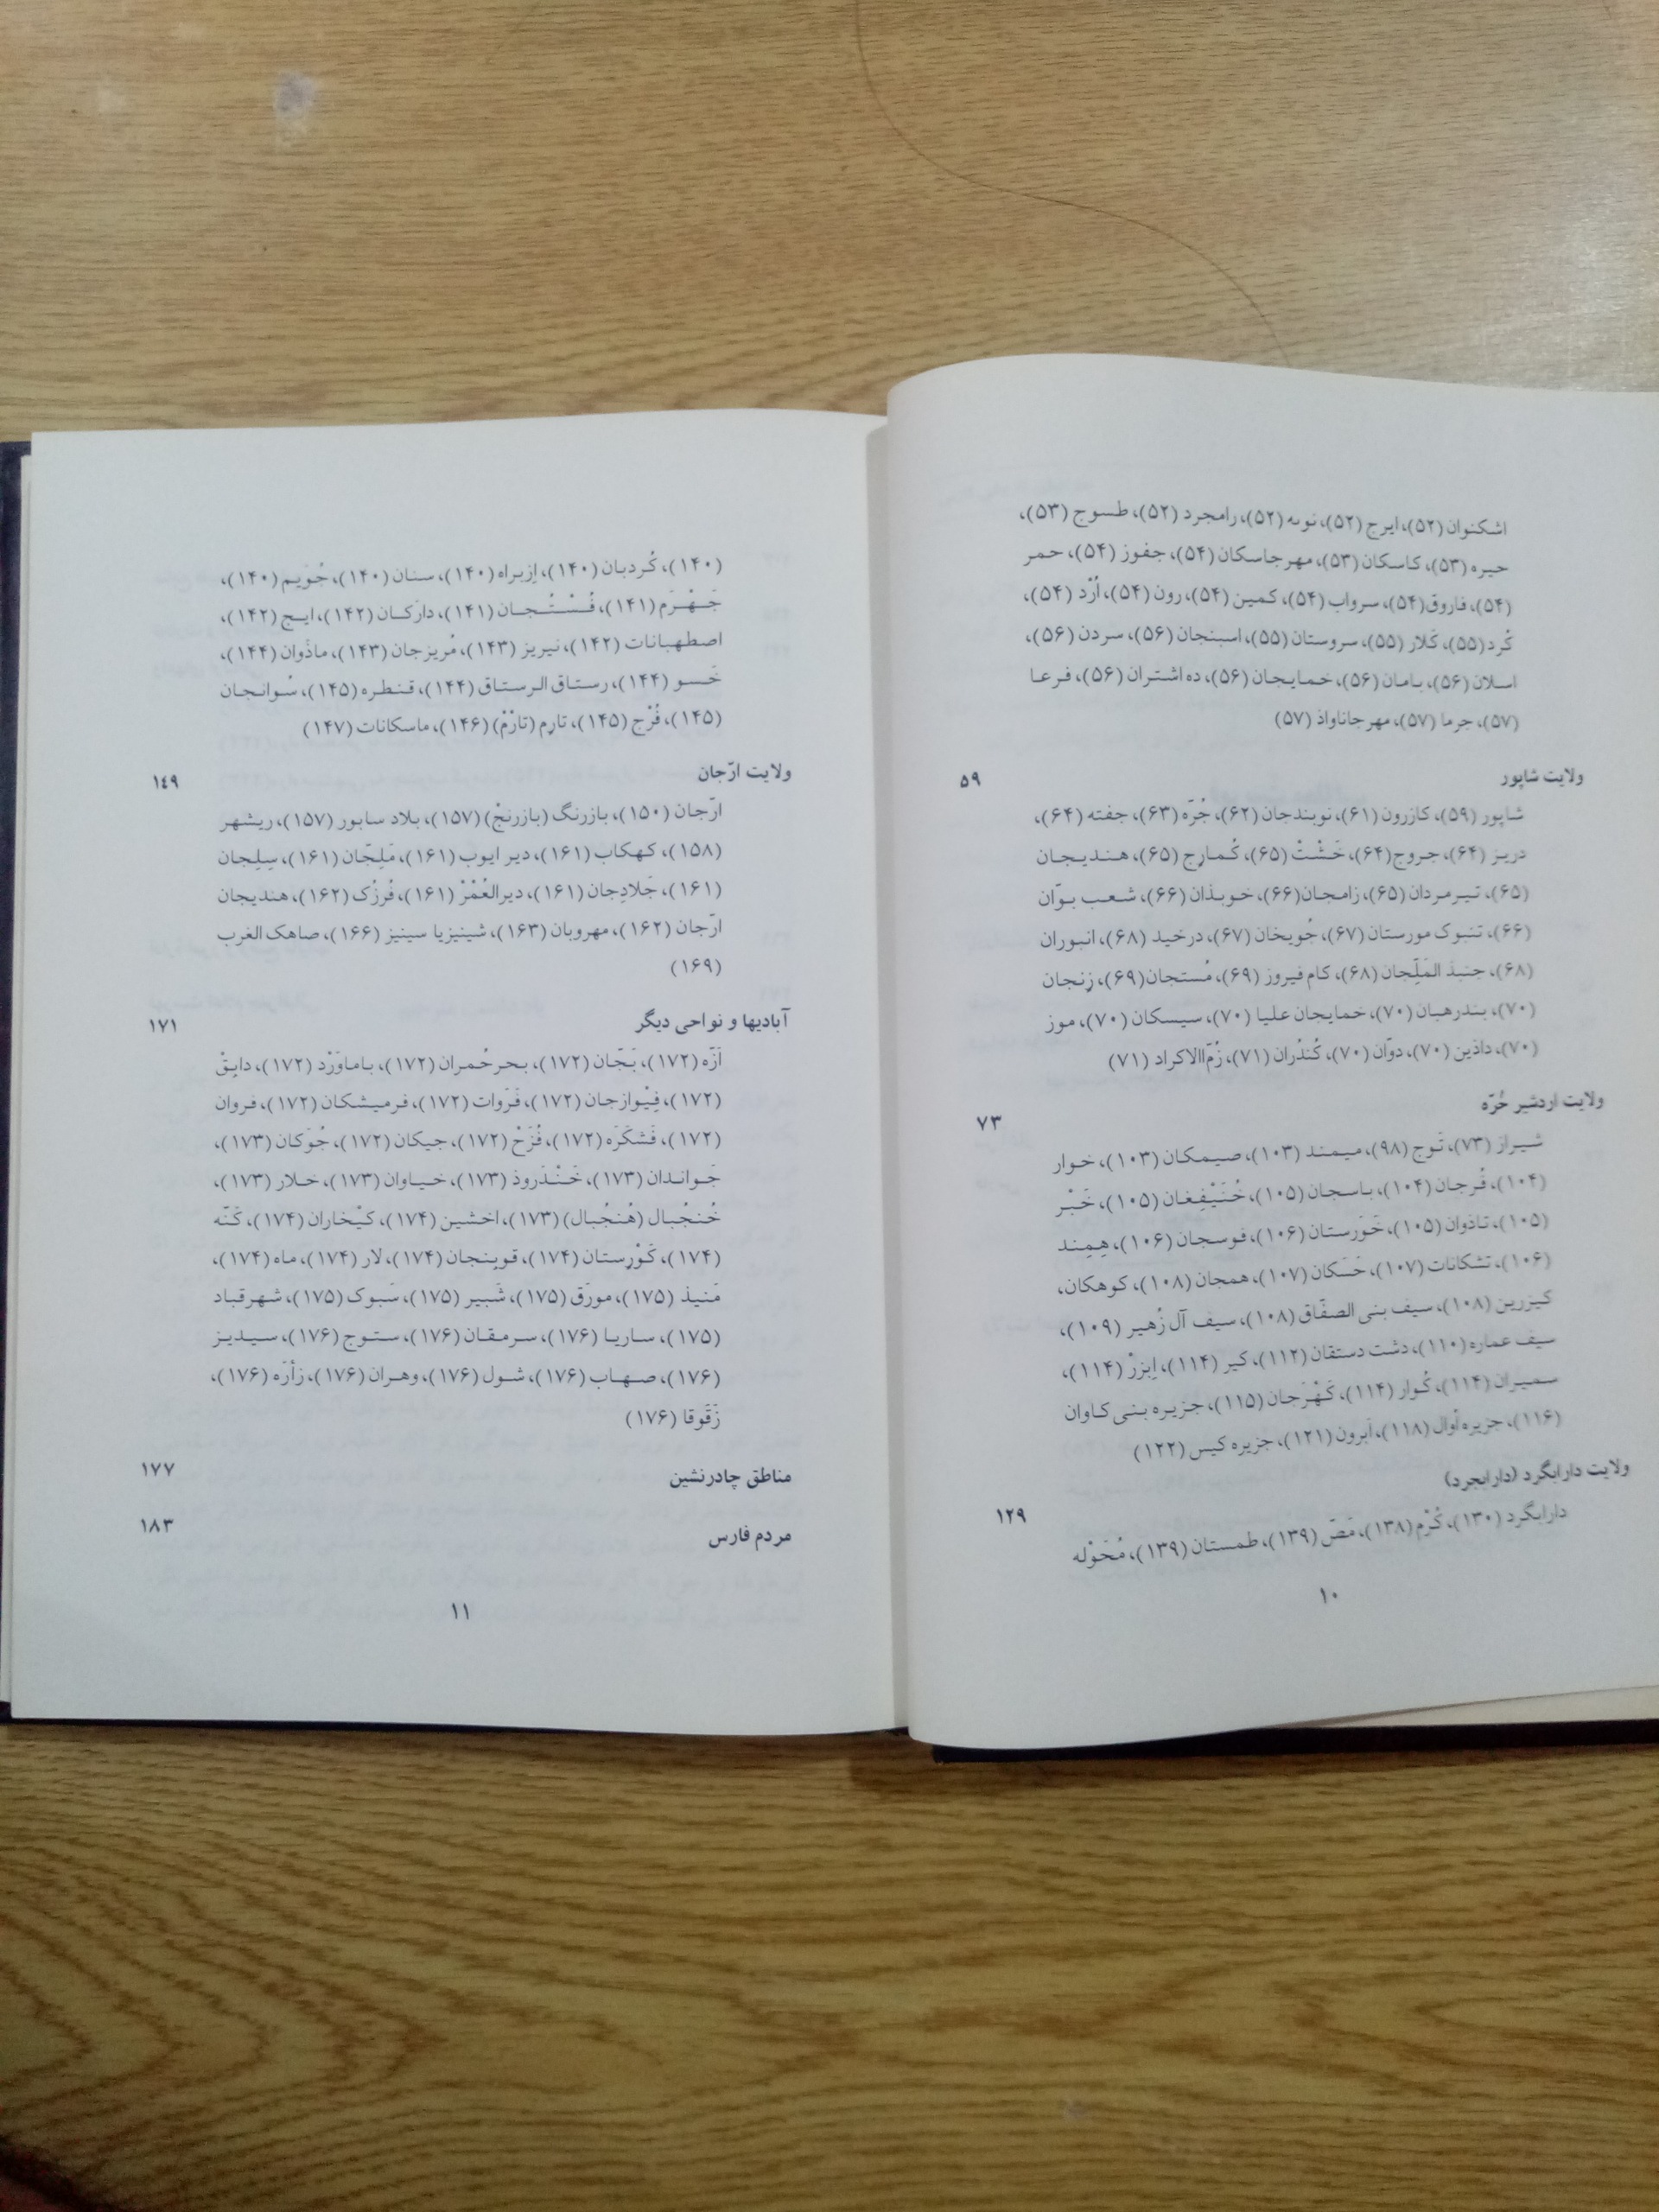 اشکنوان (۵۲)، ایرج (۵۲)، نوبه (۵۲)، رامجرد (۵۲)، طسوج (۵۳)،
حیره (۵۳)، کاسکان (۵۳)، مهرجاسکان (۵۴)، جفوز (۵۴)، حمر
(۵۴)، فاروق (۵۴)، سرواب (۵۴)، کمین (۵۴)، رون (۵۴)، اُرْد (۵۴)،
کُرد (۵۵)، کَلار (۵۵)، سروستان (۵۵)، اسبنجان (۵۶)، سردن (۵۶)،
اسلان (۵۶)، بامان (۵۶)، خمایجان (۵۶)، ده اشتران (۵۶)، فرعا
(۵۷)، جرما (۵۷)، مهرجاناواذ (۵۷)
ولایت شاپور ۵۹
شاپور (۵۹)، کازرون (۶۱)، نوبندجان (۶۲)، جُرّه (۶۳)، جفته (۶۴)،
دریز (۶۴)، جروج (۶۴)، خَشْتْ (۶۵)، کُمارج (۶۵)، هندیجان
(۶۵)، تیرمردان (۶۵)، زامجان (۶۶)، خوبذان (۶۶)، شعب بوّان
(۶۶)، تنبوک مورستان (۶۷)، جُویخان (۶۷)، درخید (۶۸)، انبوران
(۶۸)، جنبذ المَلِّجان (۶۸)، کام فیروز (۶۹)، مُستجان (۶۹)، زنجان
(۷۰)، بندرهبان (۷۰)، خمایجان علیا (۷۰)، سیسکان (۷۰)، موز
(۷۰)، داذین (۷۰)، دوّان (۷۰)، کُندُران (۷۱)، زُمّ‌الاکراد (۷۱)
ولایت اردشیر خُرّه ۷۳
شیراز (۷۳)، تَوج (۹۸)، میمند (۱۰۳)، صیمکان (۱۰۳)، خوار
(۱۰۴)، فُرجان (۱۰۴)، باسجان (۱۰۵)، خُنَیْفِغان (۱۰۵)، خَبْر
(۱۰۵)، تاذوان (۱۰۵)، خَوَرستان (۱۰۶)، فوسجان (۱۰۶)، هِمِند
(۱۰۶)، تشکانات (۱۰۷)، خَسَکان (۱۰۷)، همجان (۱۰۸)، کوهکان،
کیزرین (۱۰۸)، سیف بنی الصفّاق (۱۰۸)، سیف آل زُهیر (۱۰۹)،
سیف عماره (۱۱۰)، دشت دستقان (۱۱۲)، کیر (۱۱۴)، اِبزرْ (۱۱۴)،
سمیران (۱۱۴)، کُوار (۱۱۴)، کَهْرَجان (۱۱۵)، جزیره بنی کاوان
(۱۱۶)، جزیره أوال (۱۱۸)، اَبرون (۱۲۱)، جزیره کیس (۱۲۲)
ولایت دارابگرد (دارابجرد) ۱۲۹
دارابگرد (۱۳۰)، کُرْم (۱۳۸)، مَصّ (۱۳۹)، طمستان (۱۳۹)، مُحَوْله
۱۰
(۱۴۰)، کُردبان (۱۴۰)، اِزبراه (۱۴۰)، سنان (۱۴۰)، جُوَیم (۱۴۰)،
جَهْرَم (۱۴۱)، فُسْتُجان (۱۴۱)، دارَکان (۱۴۲)، ایج (۱۴۲)،
اصطهبانات (۱۴۲)، نیریز (۱۴۳)، مُریزجان (۱۴۳)، ماذَوان (۱۴۴)،
خَسو (۱۴۴)، رستاق الرستاق (۱۴۴)، قنطره (۱۴۵)، سُوانجان
(۱۴۵)، فُرْج (۱۴۵)، تارِم (تارْمْ) (۱۴۶)، ماسکانات (۱۴۷)
ولایت ارّجان ۱۴۹
ارّجان (۱۵۰)، بازرنگ (بازرنجْ) (۱۵۷)، بلاد سابور (۱۵۷)، ریشهر
(۱۵۸)، کهکاب (۱۶۱)، دیر ایوب (۱۶۱)، مَلِجّان (۱۶۱)، سِلِجان
(۱۶۱)، جَلادِجان (۱۶۱)، دیرالعُمْرْ (۱۶۱)، فُرزُک (۱۶۲)، هندیجان
ارّجان (۱۶۲)، مهروبان (۱۶۳)، شینیزیا سینیز (۱۶۶)، صاهک الغرب
(۱۶۹)
آبادیها و نواحی دیگر ۱۷۱
اَرّه (۱۷۲)، بَجّان (۱۷۲)، بحرحُمران (۱۷۲)، باماوَرْد (۱۷۲)، دابِقْ
(۱۷۲)، فِیْوازجان (۱۷۲)، فَرَوات (۱۷۲)، فرمیشکان (۱۷۲)، فروان
(۱۷۲)، فَشکَرَه (۱۷۲)، فُزَحْ (۱۷۲)، جیکان (۱۷۲)، جُوَکان (۱۷۳)،
جَواندان (۱۷۳)، خَنْدَروذ (۱۷۳)، خیاوان (۱۷۳)، خلار (۱۷۳)،
خُنجُبال (هُنجُبال) (۱۷۳)، اخشین (۱۷۴)، کیْخاران (۱۷۴)، کَنّه
(۱۷۴)، کَوْرِستان (۱۷۴)، قوینجان (۱۷۴)، لار (۱۷۴)، ماه (۱۷۴)،
مَنیذ (۱۷۵)، مورَق (۱۷۵)، شَبیر (۱۷۵)، سَبوک (۱۷۵)، شهرقباد
(۱۷۵)، ساریا (۱۷۶)، سرمقان (۱۷۶)، ستوج (۱۷۶)، سیدیز
(۱۷۶)، صهاب (۱۷۶)، شول (۱۷۶)، وهران (۱۷۶)، زأرَه (۱۷۶)،
زَقَوقا (۱۷۶)
مناطق چادرنشین ۱۷۷
مردم فارس ۱۸۳
۱۱